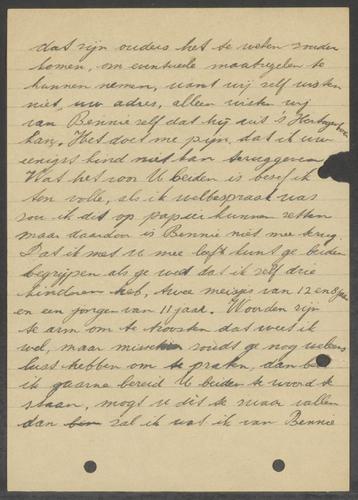 dat zijn ouders het te weten zouden
komen, om eventueele maatregelen te
kunnen nemen, want wij zelf wisten
niet uw adres, alleen wisten wij
van Bennie zelf dat hij uit 's Hertogen
Het doet me pijn, dat ik uw
eenigst kind niet kan teruggeven
Wat het voor U beiden is besef ik
ten volle, als ik welbespraakt was
zou ik dit op papier kunnen zetten
maar daardoor is Bennie niet mee terug.
Dat ik met U mee leeft kunt ge beiden
begrijpen als ge weet dat ik zelf drie
kinderen heb, twee meisjes van 12 en 8 jaar
en een jongen van 11 jaar. Woorden zijn
te arm om te troosten dat weet ik
wel, maar misschien zoudt ge nog willens
hebben om te praten, dan ben
ik gaarne bereid U beiden te woord te
staan, mogt U dit te zwaar vallen
dan zal ik wat ik van Bennie